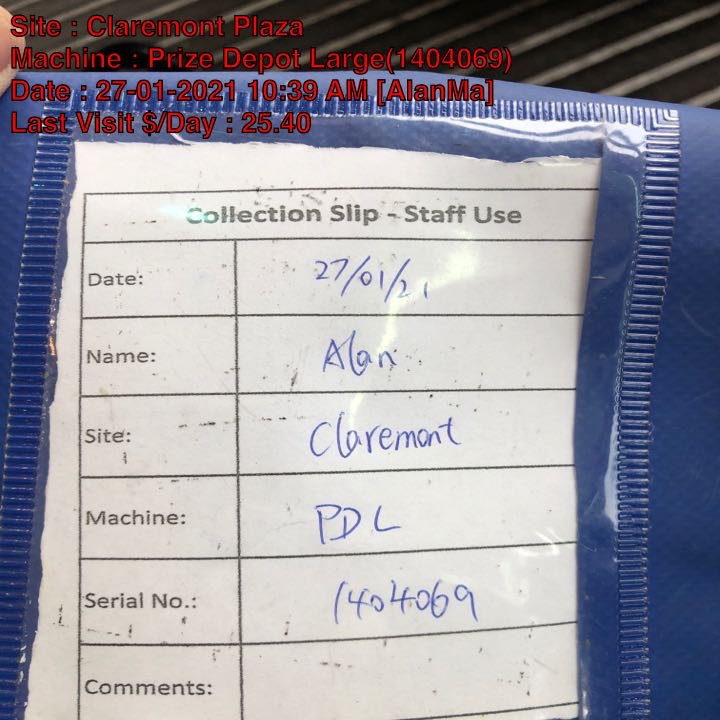 Site : Claremont Plaza
Machine : Prize Depot Large(1404069)
Date : 27-01-2021 10:39 AM [AlanMa]
Last Visit $/Day : 25.40
Collection Slip - Staff Use
Date: 27/01/21
Name: Alan
Site: Claremont
Machine: PDL
Serial No.: 1404069
Comments: